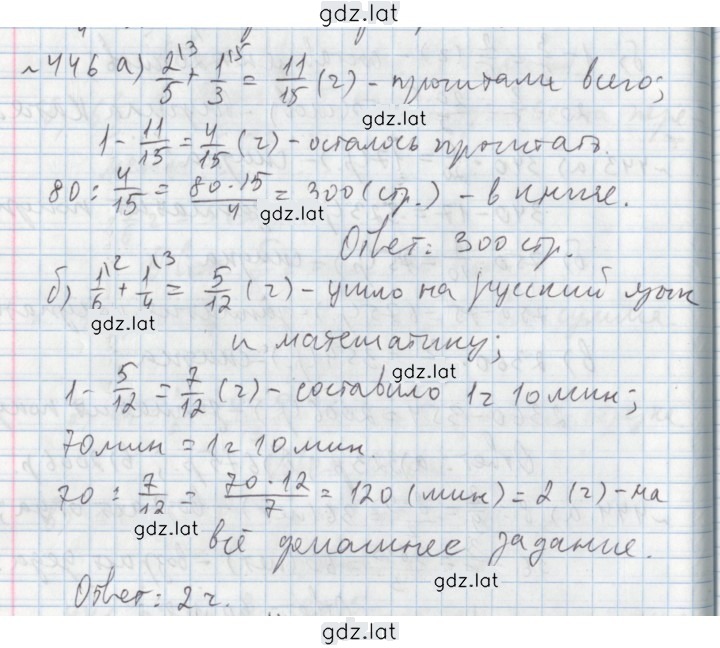 gdz.lat
№446 а) 2/5 \3 + 1/3 \5 = 11/15 (г) - прочитали всего;
gdz.lat
1 - 11/15 = 4/15 (г) - осталось прочитать.
80 : 4/15 = 80·15/4 = 300 (стр.) - в книге.
gdz.lat
Ответ: 300 стр.
б) 1/6 \2 + 1/4 \3 = 5/12 (г) - ушло на русский язык
gdz.lat
и математику;
gdz.lat
1 - 5/12 = 7/12 (г) - составило 1г 10 мин;
70 мин = 1г 10 мин.
70 : 7/12 = 70·12/7 = 120 (мин) = 2 (г) - на
gdz.lat
всё домашнее задание.
gdz.lat
Ответ: 2 ч.
gdz.lat